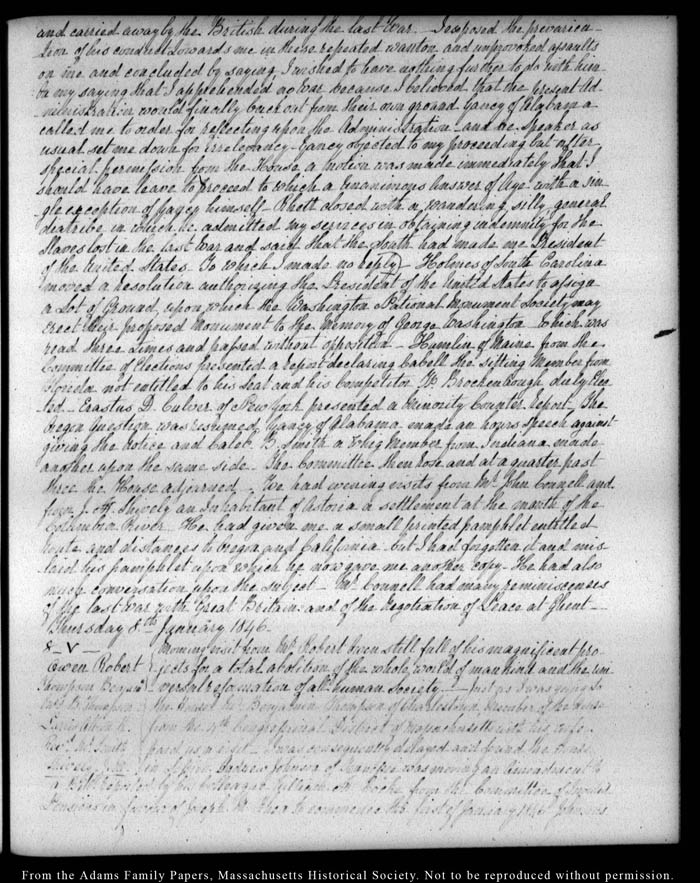 and carried away by the British during the last War. I exposed the prevarica-
tion of his conduct towards me in these repeated wanton and unprovoked assaults
on me and concluded by saying I wished to have nothing further to do with him
On my saying that I apprehended no War because I believed that the present Ad-
ministration would finally back out from their own ground Yancy of Alabama
called me to order for reflecting upon the Administration and the Speaker as
usual set me down for irrelevancy Yancy objected to my proceeding but after
special permission from the House a motion was made immediately that I
should have leave to proceed to which a unanimous answer of Aye with a sin-
gle exception of Yancy himself. Rhett closed with a wandering, silly, general
diatribe in which he admitted my services in obtaining indemnity for the
Slaves lost in the last War and said that the South had made me President
of the United States. To which I made no reply) Holmes of South Carolina
moved a resolution authorizing the President of the United States to assign
a Lot of Ground, upon which the Washington National Monument Society may
erect their proposed Monument to the Memory of George Washington which was
read three times and passed without opposition Hamlin of Maine from the
Committee of Elections presented a report declaring Cabell the sitting Member from
Florida not entitled to his seat and his Competitor Wm Brockenbrough duly Elec-
ted. Erastus D. Culver of New York presented a Minority Counter Report. The
Oregon Question was resumed, Yancy of Alabama made an hours speech against
giving the notice and Caleb B. Smith a Whig Member from Indiana made
another upon the same side. The Committee then rose and at a quarter past
three the House adjourned. We had evening visits from Mr John Connell and
from J. M. Shively an Inhabitant of Astoria a settlement at the mouth of the
Columbia River. He had given me a small printed pamphlet entitled
route and distances to Oregon and California but I had forgotten it and mis-
laid his pamphlet upon which he now gave me another copy. He had also
much conversation upon the subject. Mr Connell had many reminiscences
of the last War with Great Britain and of the Negotiation of Peace at Ghent
Thursday 8th January 1846.
8 V Morning visit from Mr Robert Owen still full of his magnificent pro-
Owen Robert jects for a total abolition of the whole world of mankind and the uni-
Thompson Benjn versal reformation of all human Society. Just as I was going to
the House Mr Benjamin Thompson of Charlestown, Member of the House
from the 4th Congressional District of Massachusetts with his wife
paid us a visit I was consequently delayed and found the House
Shively J. M. in Andrew Johnson of Tennessee was moving an amendment to
a Bill reported by his Colleague William M. Cocke from the Committee of Invalid
Pensions in favour of Joseph to commence the first of January Johnson
From the Adams Family Papers, Massachusetts Historical Society. Not to be reproduced without permission.